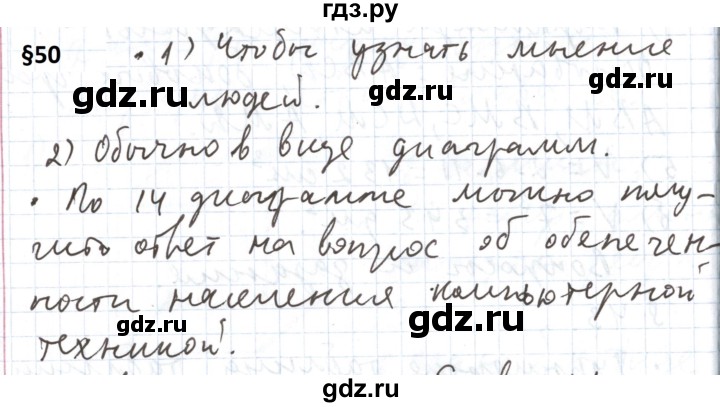 гдз.ру
§50
• 1) Чтобы узнать мнение
gdz.ru gdz.ru
людей.
2) Обычно в виде диаграмм.
• По 14 диаграмме можно полу-
чить ответ на вопрос об обепечен-
ности населения компьютерной
gdz.ru gdz.ru
техникой.
gdz.ru